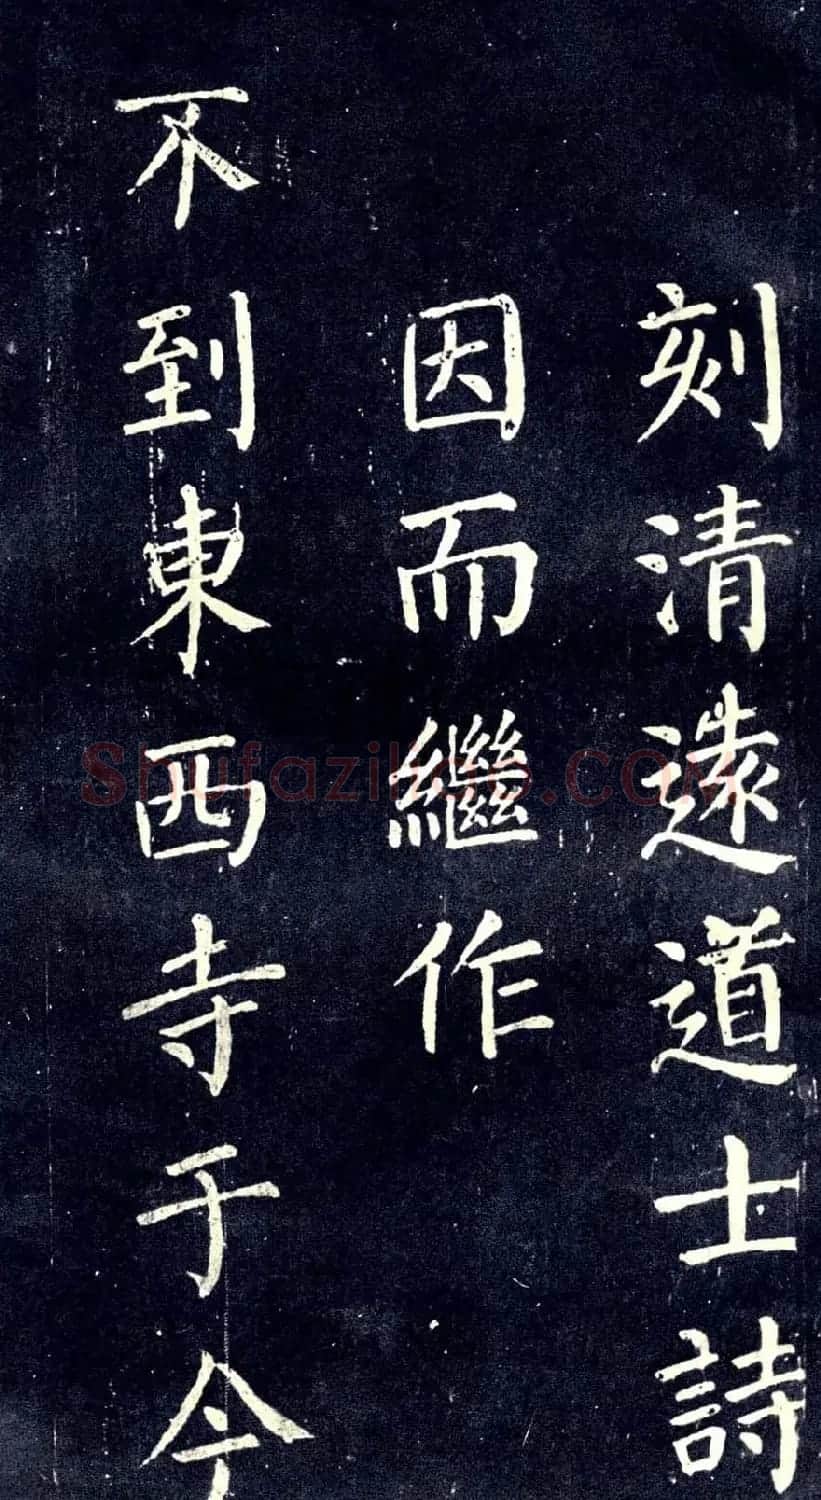 刻清遠道士詩
因而繼作
不到東西寺于今
Shufaziliao.COM